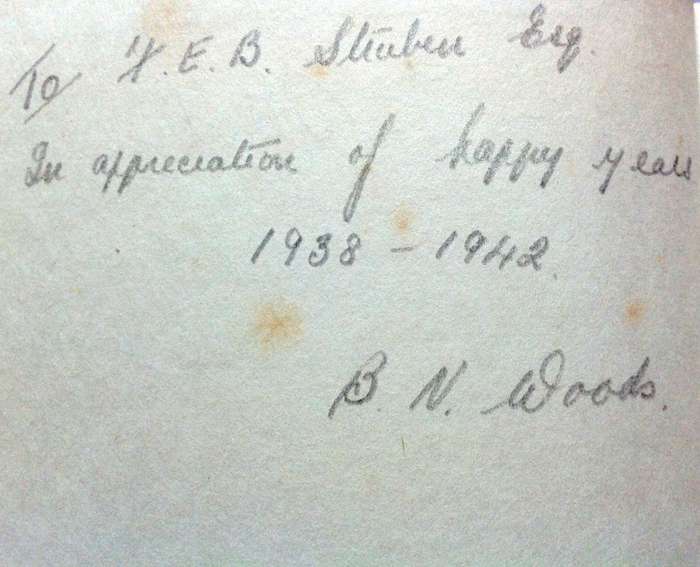 To F. E. B. Struben Esq.
In appreciation of happy years
1938 - 1942.
B. N. Woods.